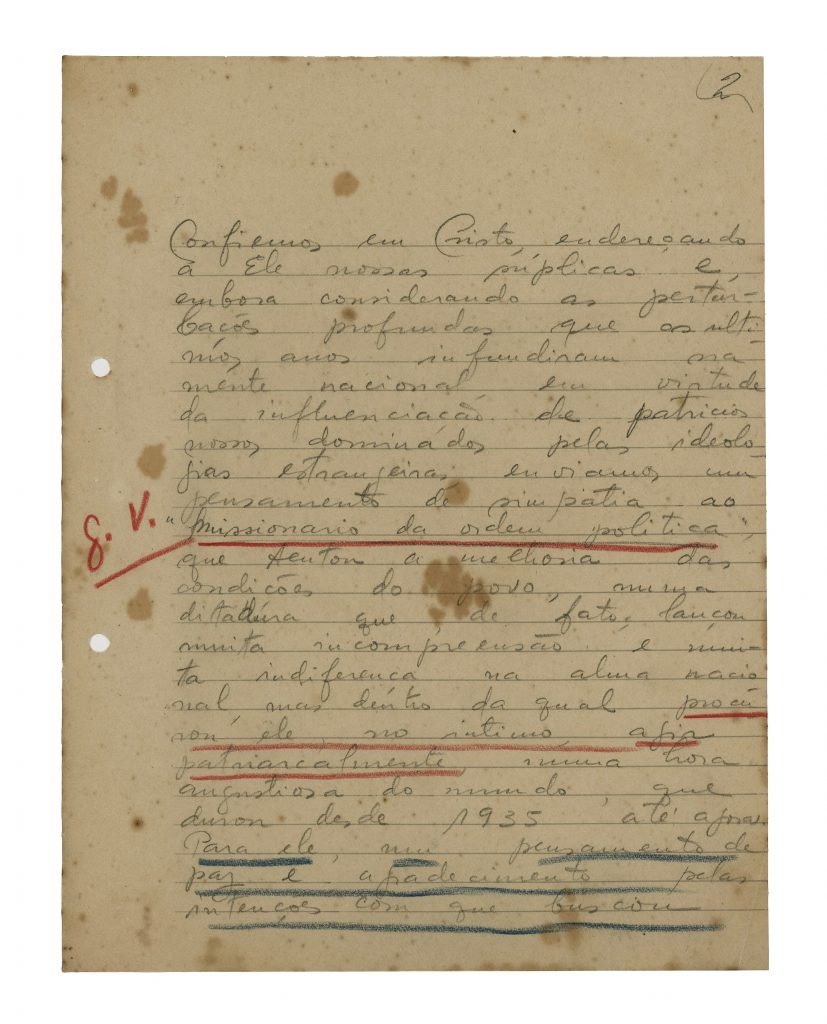 2
Confiemos em Cristo, endereçando
a Ele nossas súplicas e,
embora considerando as pertur-
bações profundas que os ulti
mos anos infundiram na
mente nacional em virtude
da influenciação de patricios
nossos, dominados pelas ideolo
gias estrangeiras, enviamos um
pensamento de simpatia ao
G. V. "Missionario da ordem politica",
que tentou a melhoria das
condições do povo, numa
ditadura que, de fato, lançou
muita incompreensão e mui-
ta indiferença na alma nacio
nal, mas dentro da qual procu
rou ele, no intimo, agir
patriarcalmente, numa hora
angustiosa do mundo, que
durou desde 1935 até agora.
Para ele, um pensamento de
paz e agradecimento pelas
intenções com que buscou